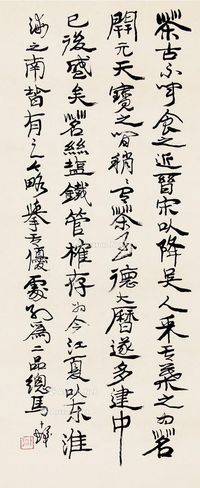 茶古不聞食之近晉宋以降吳人采其葉煮之為茗
開元天寶之間稍有茶至德大曆遂多建中
已後盛矣茗絲鹽鐵管榷存為今江夏以東淮
海之南皆有之今略舉其優處別為二品總焉